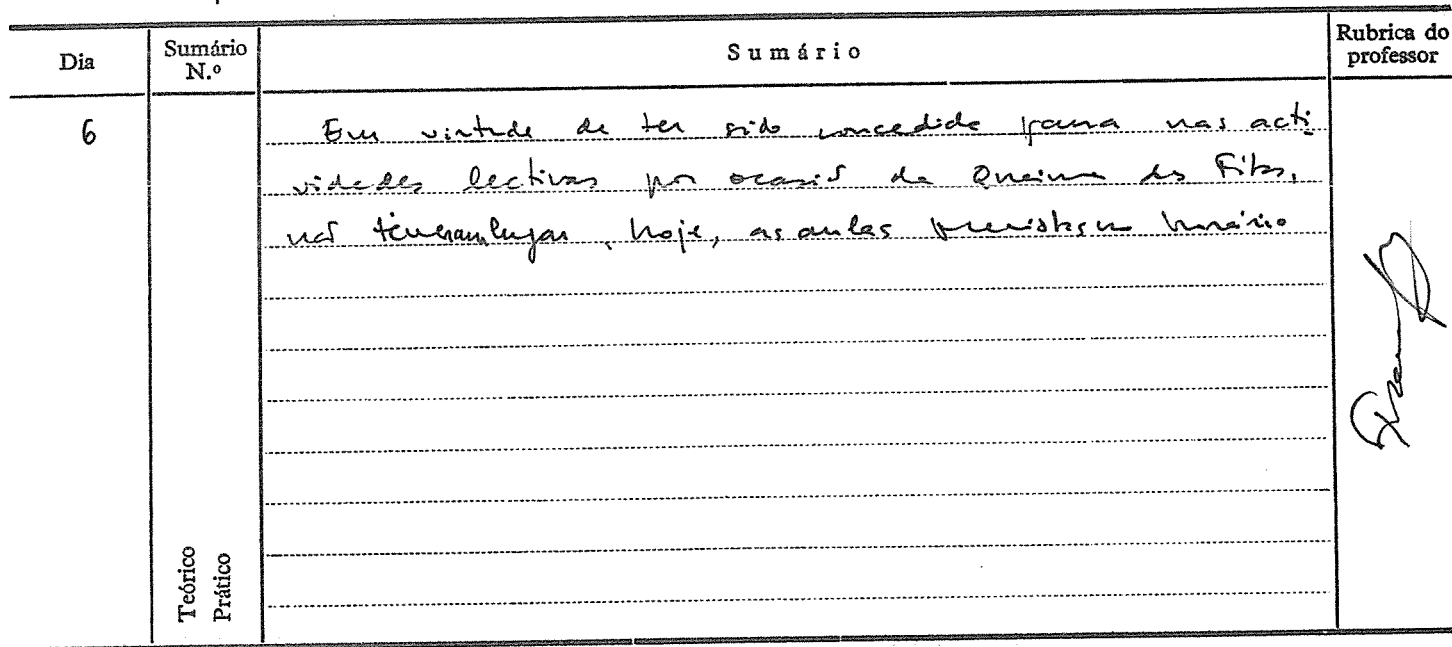 Dia
Sumário N.º
Sumário
Rubrica do professor
6
Em virtude de ter sido concedida pausa nas acti
vidades lectivas por ocasião da Queima das Fitas,
não tiveram lugar, hoje, as aulas previstas no horário
Teórico
Prático